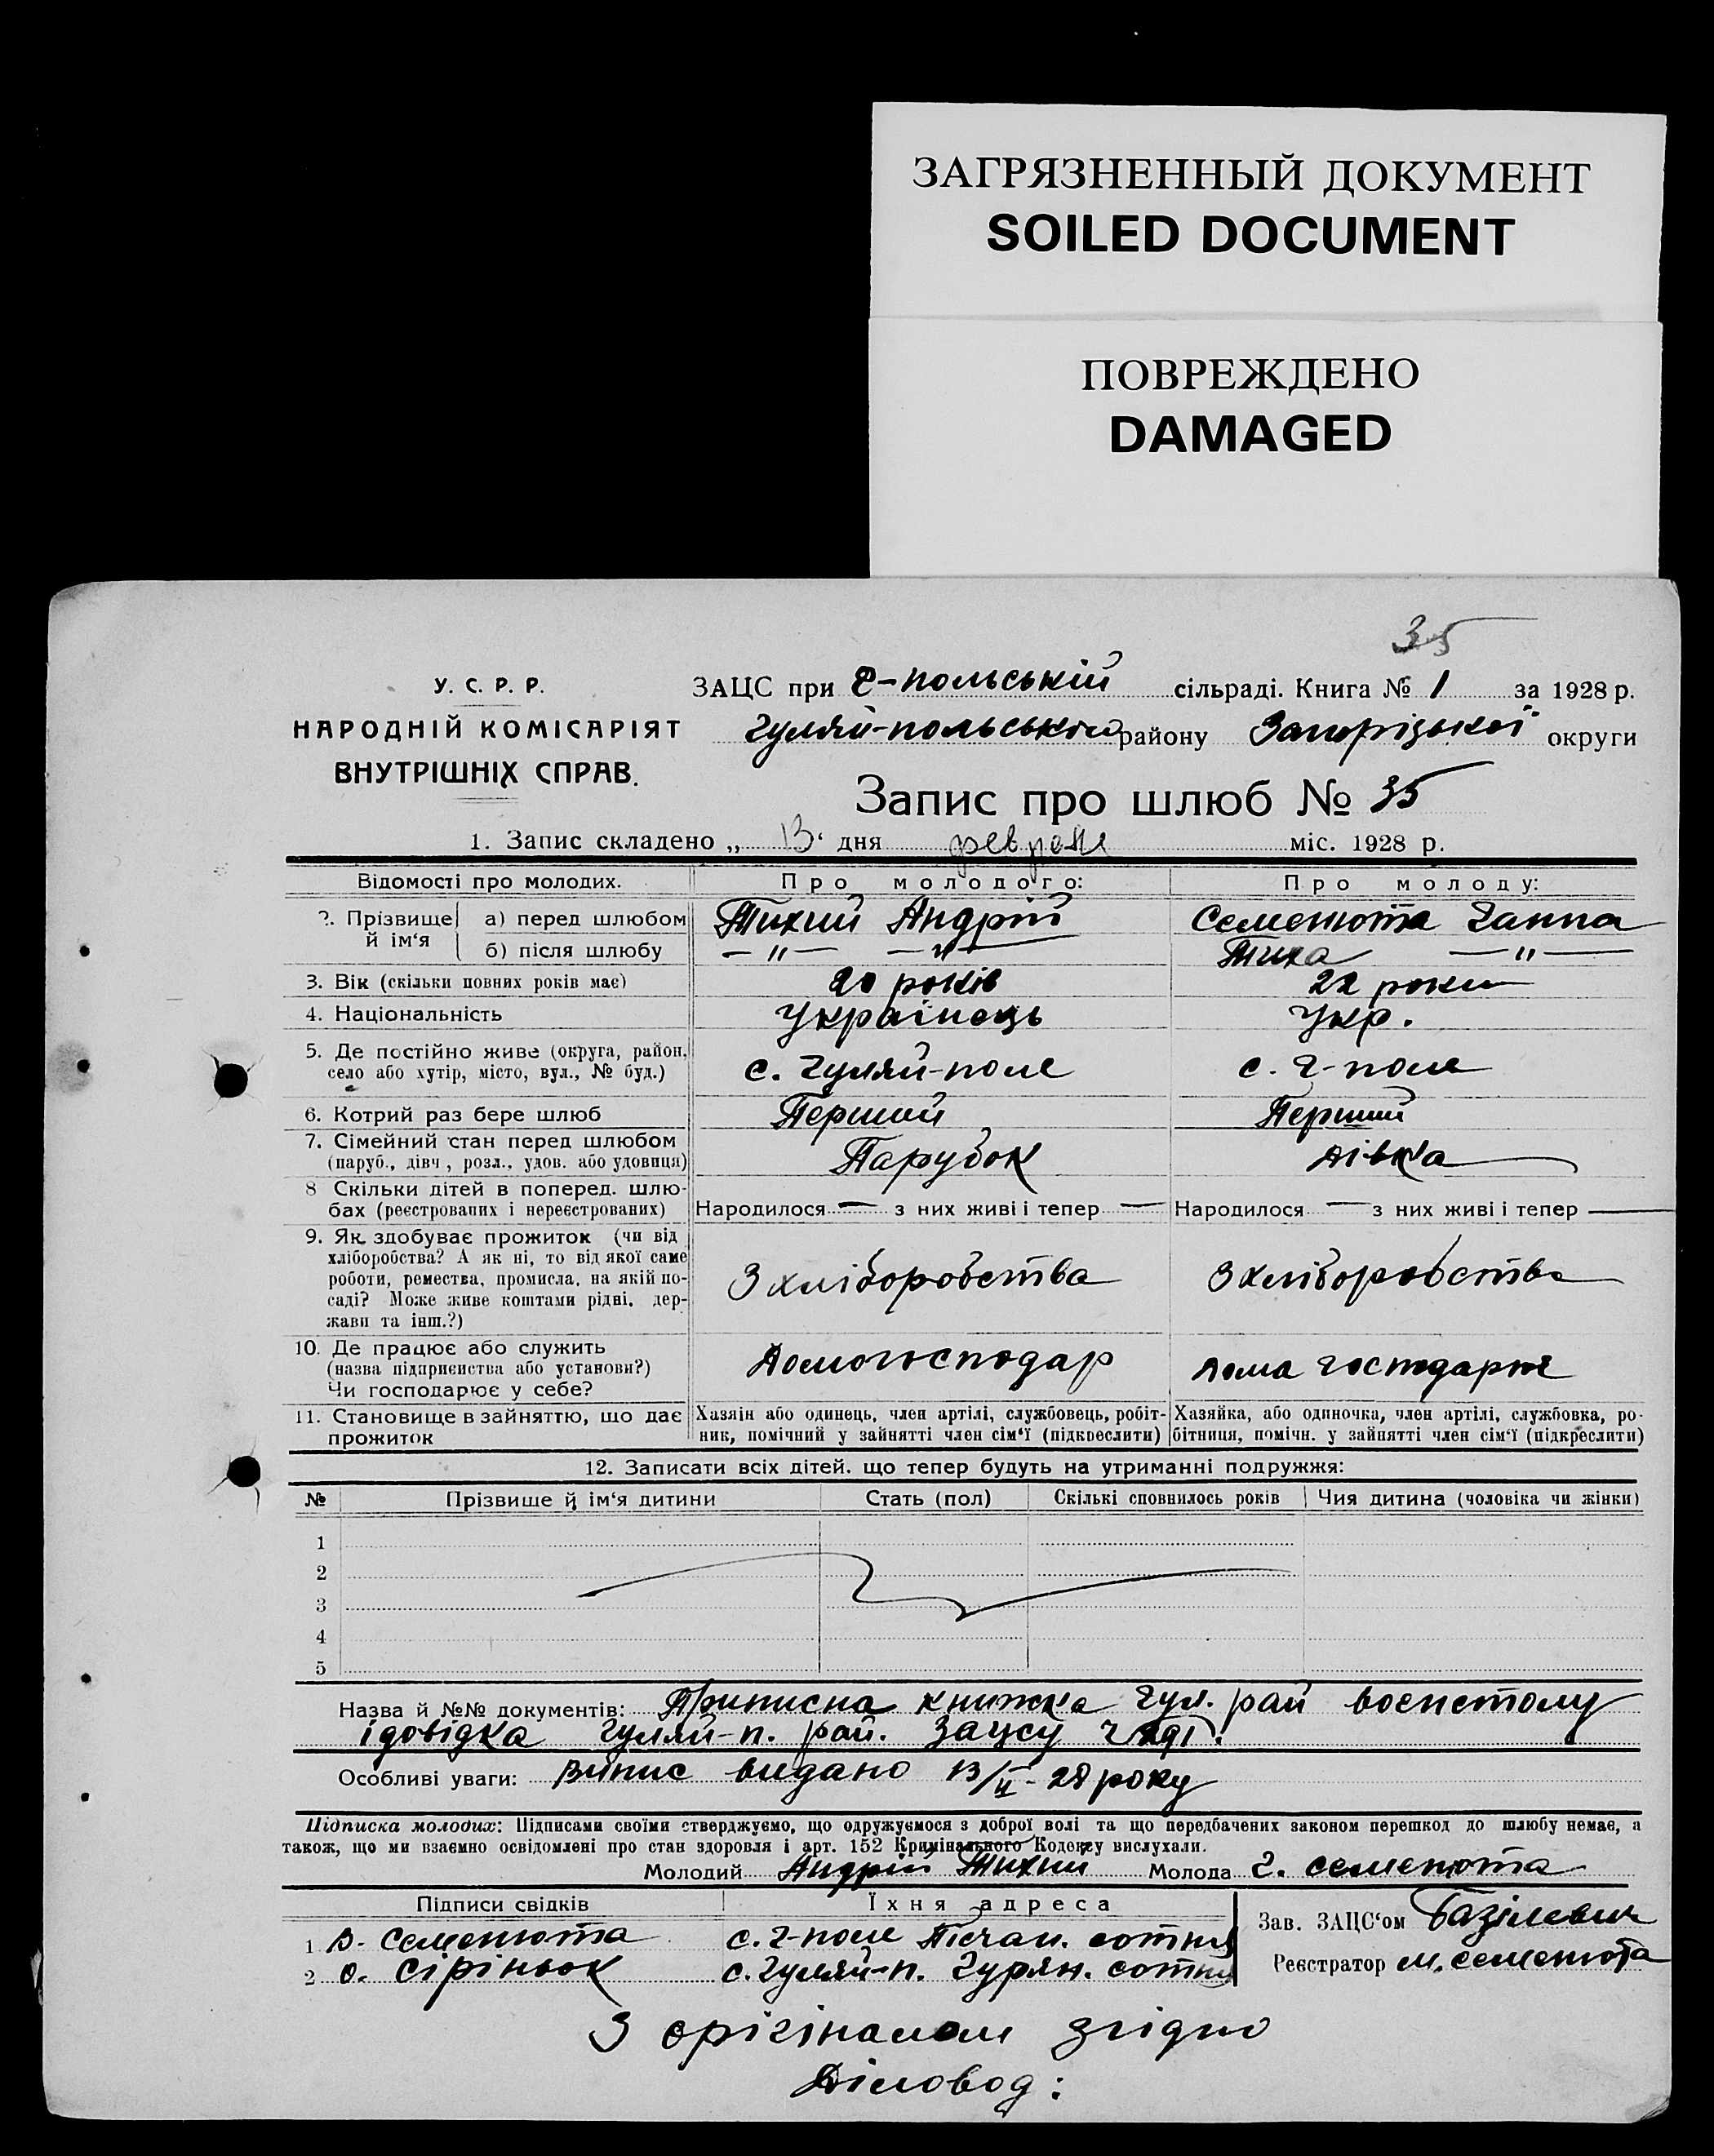 ЗАГРЯЗНЕННЫЙ ДОКУМЕНТ
SOILED DOCUMENT
ПОВРЕЖДЕНО
DAMAGED
35
У. С. Р. Р.
НАРОДНІЙ КОМІСАРІЯТ
ВНУТРІШНІХ СПРАВ.
ЗАЦС при Г-польській сільраді. Книга № 1 за 1928 р.
Гуляй-польського району Запорізької округи
Запис про шлюб № 35
1. Запис складено „ 13 “ дня февраля міс. 1928 р.
Відомості про молодих. Про молодого: Про молоду:
2. Прізвище й ім‘я а) перед шлюбом Тихий Андрій Семенюта Ганна
б) після шлюбу — „ — — „ — Тиха — „ —
3. Вік (скільки повних років має) 20 років 22 роки
4. Національність Українець Укр.
5. Де постійно живе (округа, район, село або хутір, місто, вул., № буд.) с. Гуляй-поле с. Г-поле
6. Котрий раз бере шлюб Перший Перший
7. Сімейний стан перед шлюбом (паруб., дівч., розл., удов. або удовиця) Парубок Дівка
8 Скільки дітей в поперед. шлюбах (реєстрованих і нереєстрованих) Народилося — з них живі і тепер — Народилося — з них живі і тепер —
9. Як здобуває прожиток (чи від хліборобства? А як ні, то від якої саме роботи, ремества, промисла, на якій посаді? Може живе коштами рідні, держави та інш.?) З хліборобства З хліборобства
10. Де працює або служить (назва підприєнства або установи?) Чи господарює у себе? Домогосподар дома господарює
11. Становище в зайняттю, що дає прожиток Хазяін або одинець, член артілі, службовець, робітник, помічний у зайнятті член сім‘ї (підкреслити) Хазяйка, або одиночка, член артілі, службовка, робітниця, помічн. у зайнятті член сім‘ї (підкреслити)
12. Записати всіх дітей. що тепер будуть на утриманні подружжя:
№ Прізвище й ім‘я дитини Стать (пол) Скількі сповнилось років Чия дитина (чоловіка чи жінки)
1
2
3
4
5
Назва й №№ документів: Приписна книжка Гул. рай воєнстолу
і довідка Гуляй-п. рай. Зацсу
Особливі уваги: Випис видано 13/II-28 року
Підписка молодих: Підписами своїми стверджуємо, що одружуємося з доброї волі та що передбачених законом перешкод до шлюбу немає, а
також, що ми взаємно освідомлені про стан здоровля і арт. 152 Кримінального Кодексу вислухали.
Молодий Андрій Тихий Молода Г. Семенюта
Підписи свідків Їхня адреса
1 В. Семенюта с. Г-поле Пісчан. сотня
2 О. Сіріньок с. Гуляй-п. Гурян. сотня
Зав. ЗАЦС‘ом Базілевич
Реєстратор М. Семенюта
З орігіналом згідно
Діловод: